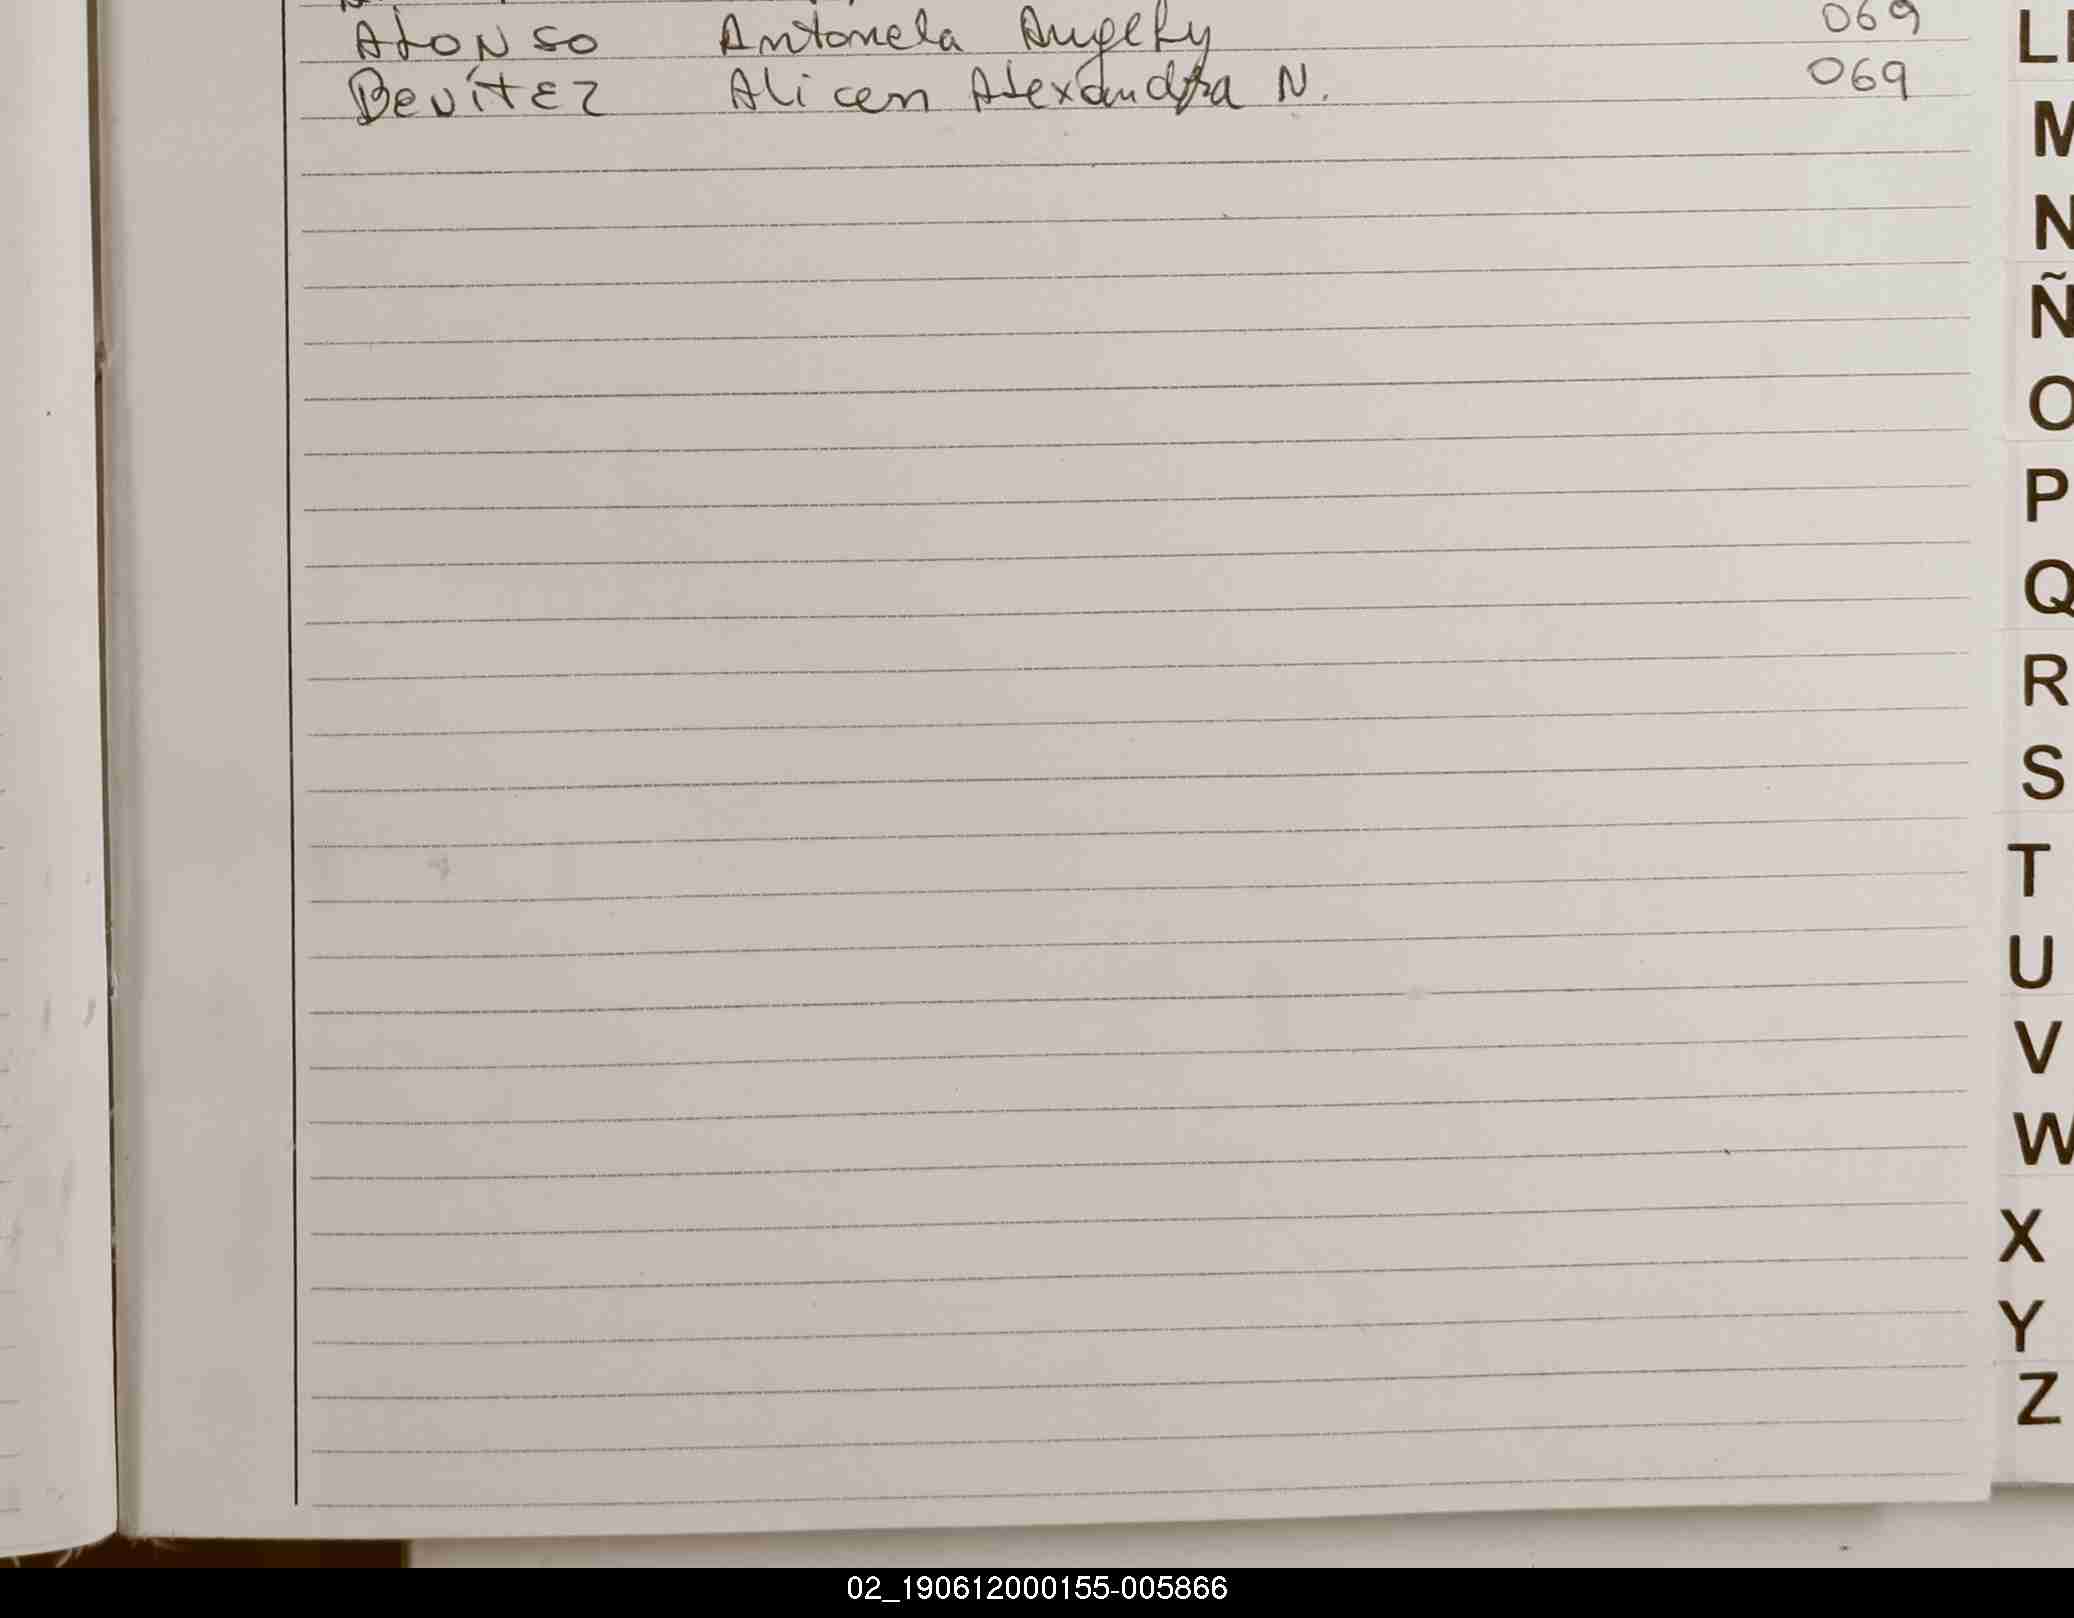 Alonso Antonela Angely 069
Benítez Alicen Alexandra N. 069
Ll
M
N
Ñ
O
P
Q
R
S
T
U
V
W
X
Y
Z
02_190612000155-005866